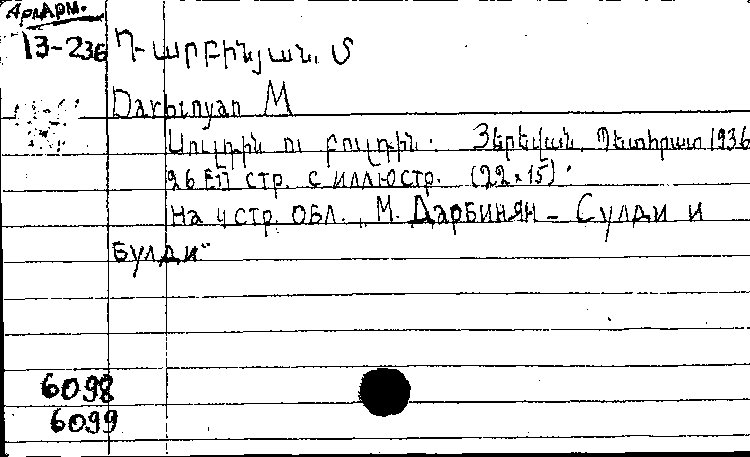 АрмАрм.
13-236 Դարբինյան, Մ
Darbinyan M
Սուլդին ու բուլդին. Յերեվան, Պետհրատ 1936
26 էջ стр. с иллюстр. (22×15).
на 4 стр. обл. „М. Дарбинян - Сулди и
Булди"
6098
6099